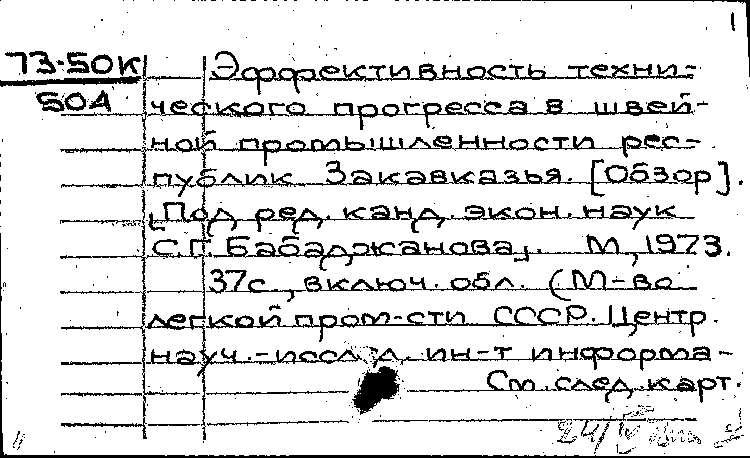 1
73-50к
504
Эффективность техни-
ческого прогресса в швей-
ной промышленности рес-
публик Закавказья. [Обзор].
[Под ред. канд. экон. наук
С.Г. Бабаджанова]. М., 1973.
37с., включ. обл. (М-во
легкой пром-сти СССР. Центр.
науч.-иссл ин-т информа-
См. след. карт.
24/IV